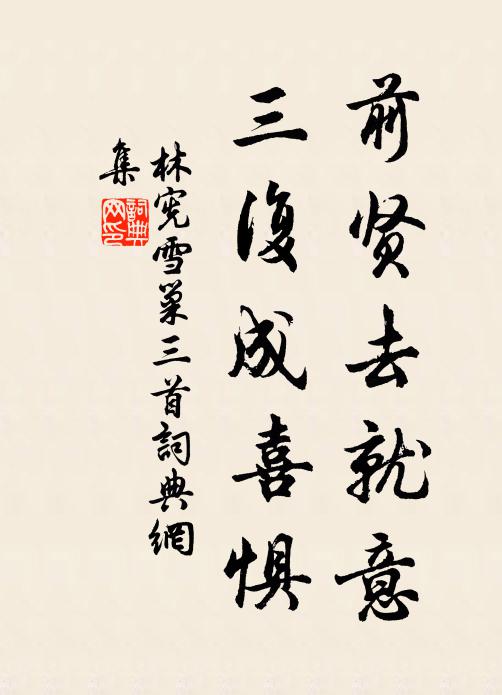 前贤去就意
三復成喜惧
林宪雪巢三首詞典網
集
詞典网印